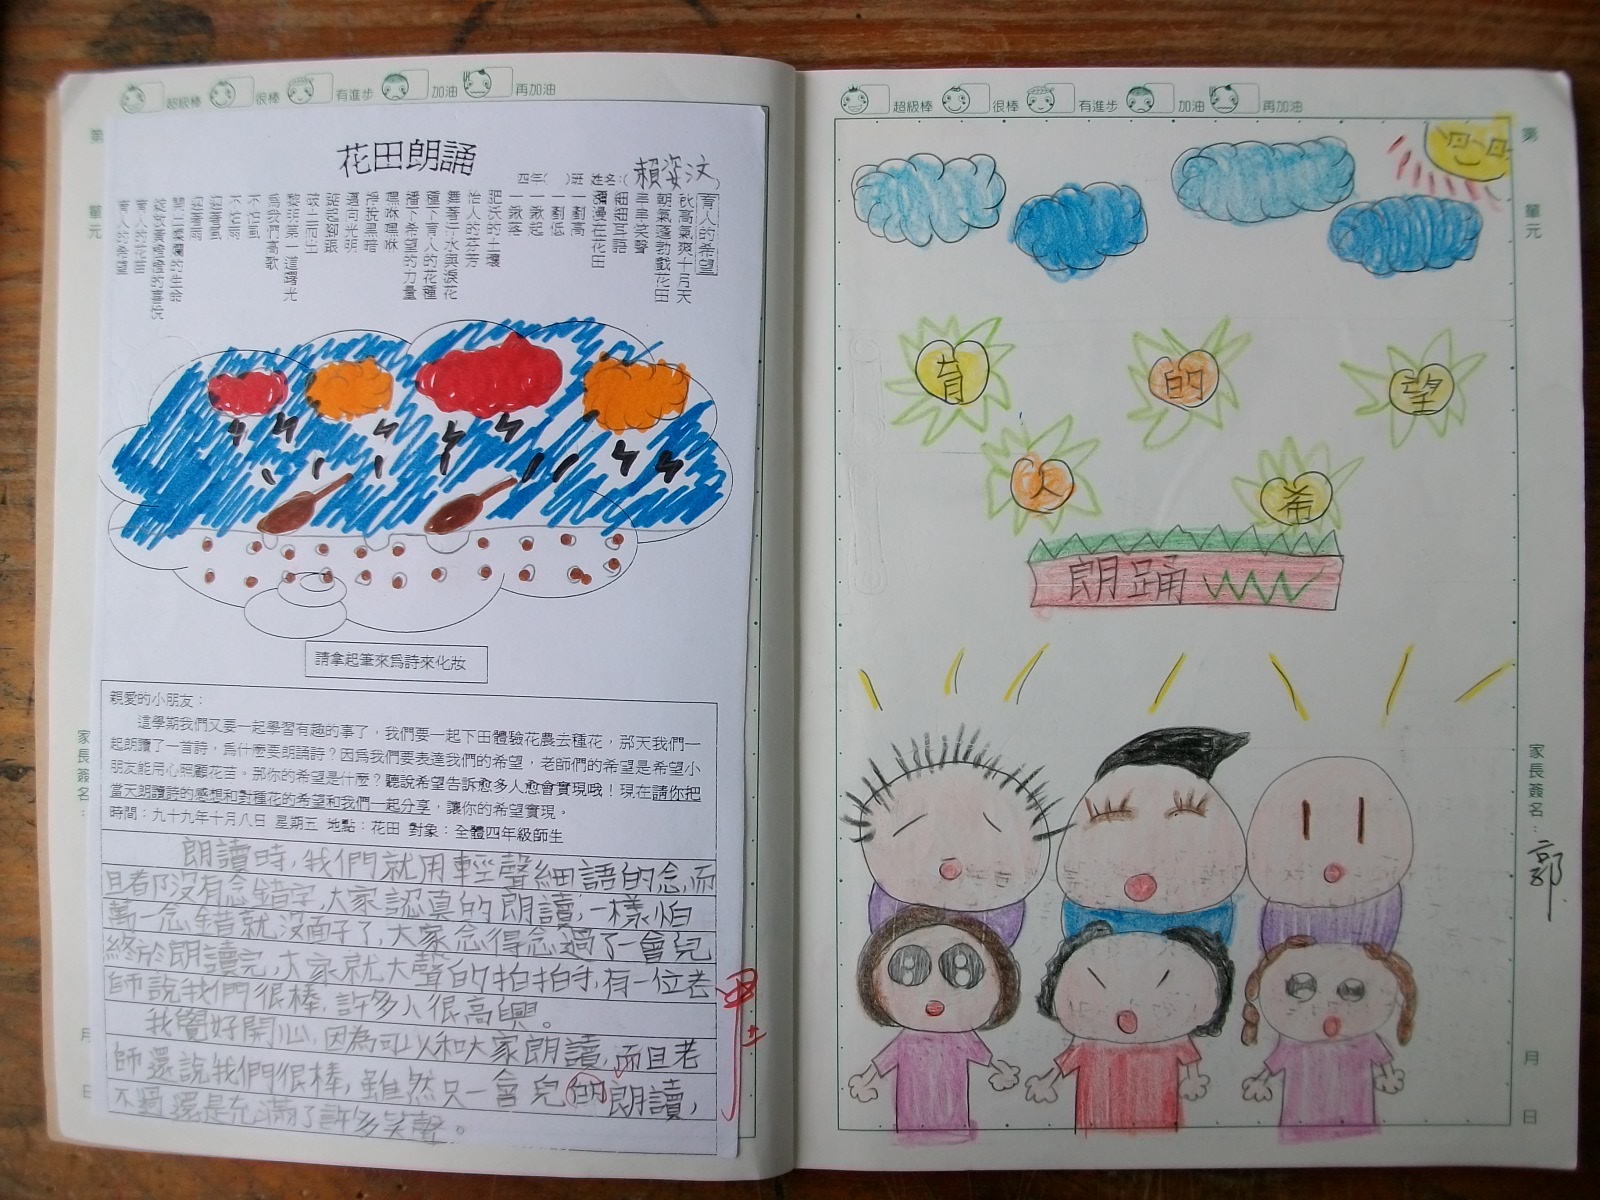 超級棒 很棒 有進步 加油 再加油
第 單元
花田朗誦
四年( )班 姓名:(賴姿汶)
育人的希望
秋高氣爽十月天
朝氣蓬勃戲花田
串串笑聲
細細耳語
瀰漫在花田
一劃高
一劃低
一鍬起
一鍬落
肥沃的土壤
怡人的芬芳
舞著汗水與淚花
種下育人的花種
播下希望的力量
嘿咻嘿咻
掙脫黑暗
邁向光明
踮起腳跟
破土而出
黎明第一道曙光
為我們高歌
不怕風
不怕雨
迎著風
迎著雨
育人的花苗
育人的希望
請拿起筆來為詩來化妝
親愛的小朋友：
這學期我們又要一起學習有趣的事了，我們要一起下田體驗花農去種花，那天我們一
起朗讀了一首詩，為什麼要朗誦詩？因為我們要表達我們的希望，老師們的希望是希望小
朋友能用心照顧花苗。那你的希望是什麼？聽說希望告訴愈多人愈會實現哦！現在請你把
當天朗讀詩的感想和對種花的希望和我們一起分享，讓你的希望實現。
時間：九十九年十月八日 星期五 地點：花田 對象：全體四年級師生
朗讀時,我們就用輕聲細語的念,而
且都沒有念錯字,大家認真的朗讀,一樣怕
萬一念錯就沒面子了,大家念得念過了一會兒
終於朗讀完,大家就大聲的拍拍手,有一位老
師說我們很棒,許多人很高興。
我覺好開心,因為可以和大家朗讀,而且老
師還說我們很棒,雖然只一會兒的朗讀,
不過還是充滿了許多笑聲。
甲上
家長簽名：
月 日
超級棒 很棒 有進步 加油 再加油
第 單元
育 的 望
人 希
朗踊
家長簽名：郭
月 日